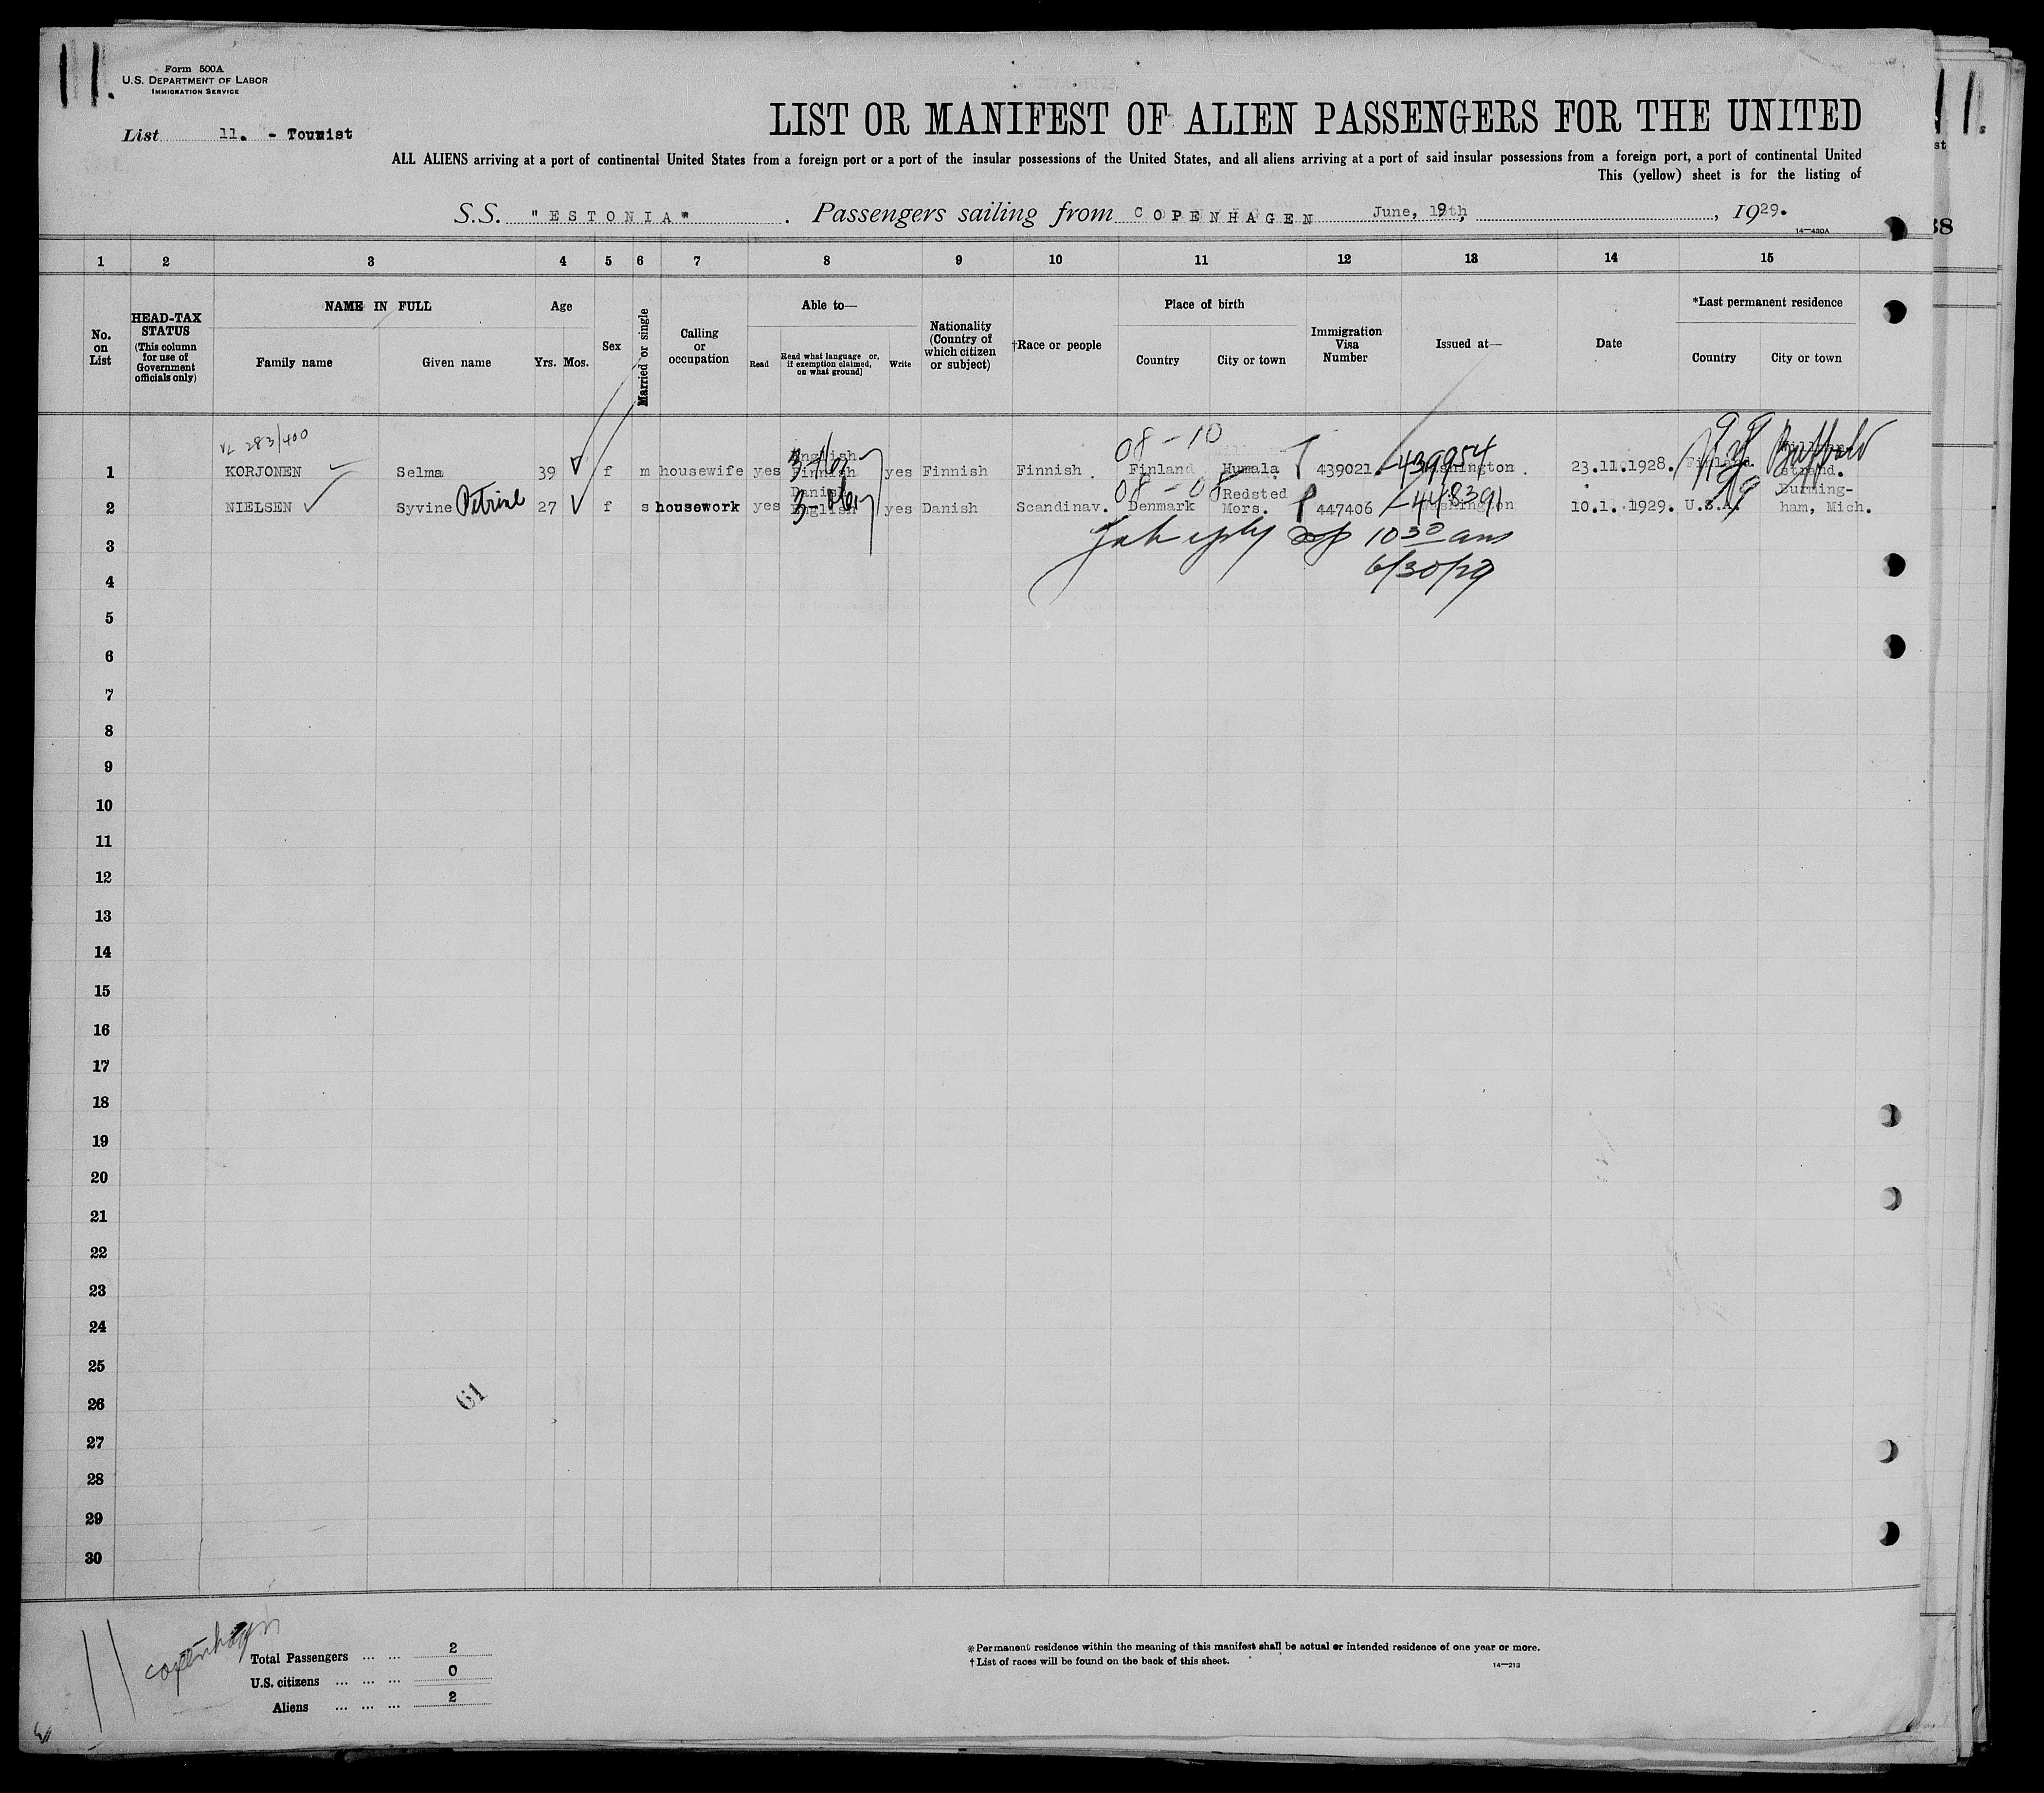 11.
Form 500A
U.S. DEPARTMENT OF LABOR
IMMIGRATION SERVICE
List 11. - Tourist
LIST OR MANIFEST OF ALIEN PASSENGERS FOR THE UNITED
ALL ALIENS arriving at a port of continental United States from a foreign port or a port of the insular possessions of the United States, and all aliens arriving at a port of said insular possessions from a foreign port, a port of continental United
This (yellow) sheet is for the listing of
S.S. "ESTONIA" . Passengers sailing from COPENHAGEN June, 19th, , 1929.
14—430A
1 2 3 4 5 6 7 8 9 10 11 12 13 14 15
No. on List
HEAD-TAX STATUS (This column for use of Government officials only)
NAME IN FULL
Family name Given name
Age
Yrs. Mos.
Sex
Married or single
Calling or occupation
Able to—
Read Read what language or, if exemption claimed, on what ground] Write
Nationality (Country of which citizen or subject)
†Race or people
Place of birth
Country City or town
Immigration Visa Number
Issued at—
Date
*Last permanent residence
Country City or town
283/400 08-10 99 Buffalo
1 KORJONEN Selma 39 f m housewife yes English Finnish yes Finnish Finnish . Finland Humala 439021 439954 Washington . 23.11.1928. Finland strand.
08-08 99
2 NIELSEN Syvine Petrine 27 f s housework yes Danish English yes Danish Scandinav. Denmark Redsted Mors. 447406 448391 Washington 10.1. 1929. U.S.A. Burming-ham, Mich.
3 10 30 am
4 6/30/29
5
6
7
8
9
10
11
12
13
14
15
16
17
18
19
20
21
22
23
24
25
26
27
28
29
30
61
11 copenhagen
Total Passengers ... ... 2
U.S. citizens ... ... ... 0
Aliens ... ... ... 2
*Permanent residence within the meaning of this manifest shall be actual or intended residence of one year or more.
†List of races will be found on the back of this sheet.
14—213